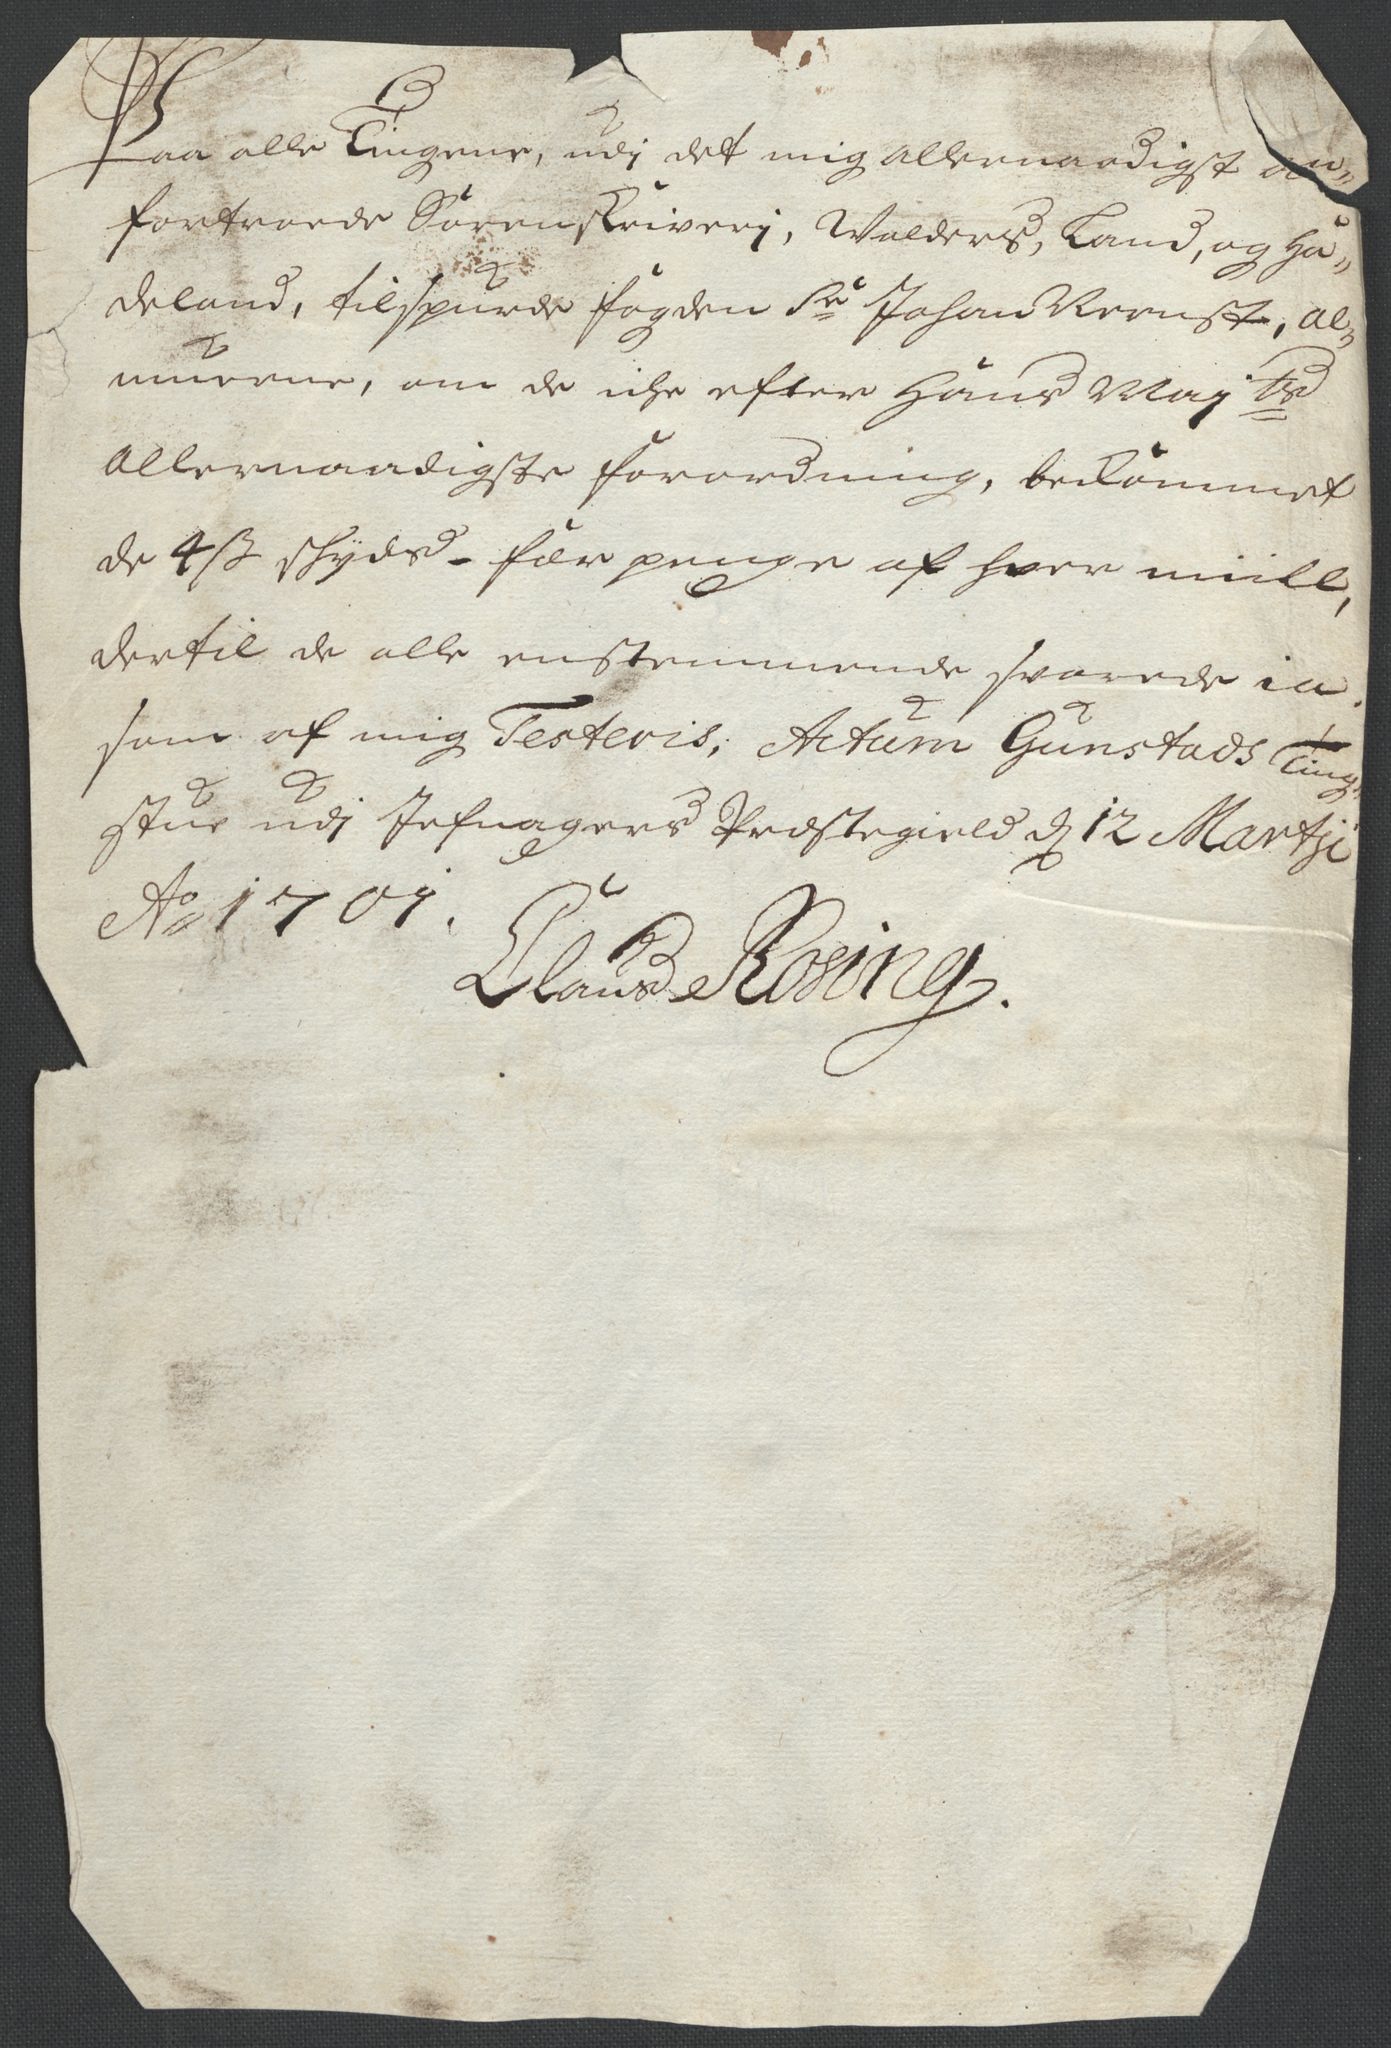 Paa alle Tingene, udj det mig allernaadigst an„
fortroede Sorenskriverj, Walders, Land, og Ha„
deland, tilspurde fogden Sr Johan Reenst, al„
muerne, om de iche efter Hans Mayts
Allernaadigste forordning, bekommet
de 4 ß schyds-færpenge af hver miill,
dertil de alle enstemmende svarede ia.
som af mig Testeris; Actum Gunstads Ting„
stue udj Jefnagers Prestegield d 12 Martji
Ao 1701.
Claus Rosing.